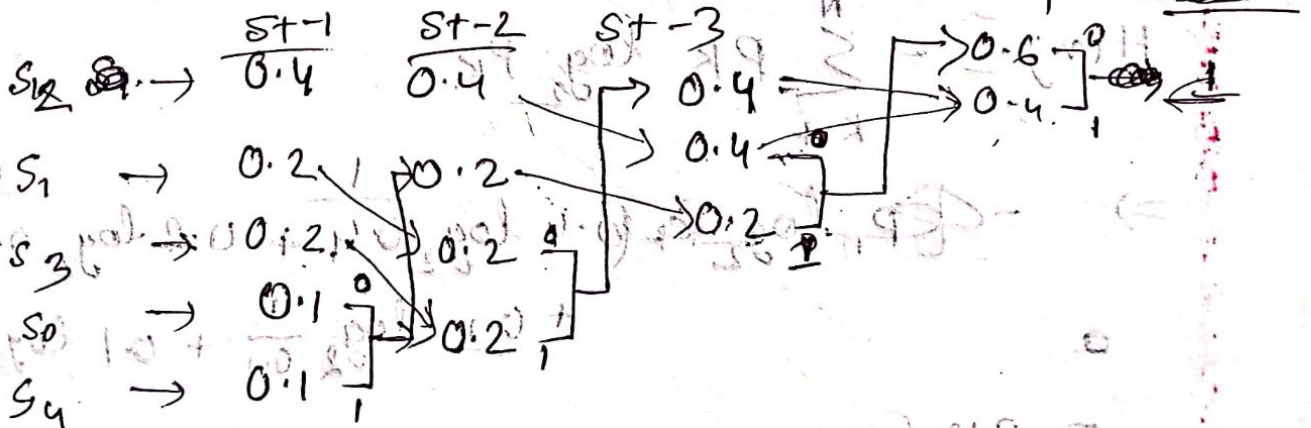 St-1 St-2 St-3
S2 → 0.4 0.4 0.4 0.6 0
0.4 0.4 1 1
S1 → 0.2 0.2 0
S3 → 0.2 0.2 0 0.2 1
S0 → 0.1 0 0.2 1
S4 → 0.1 1